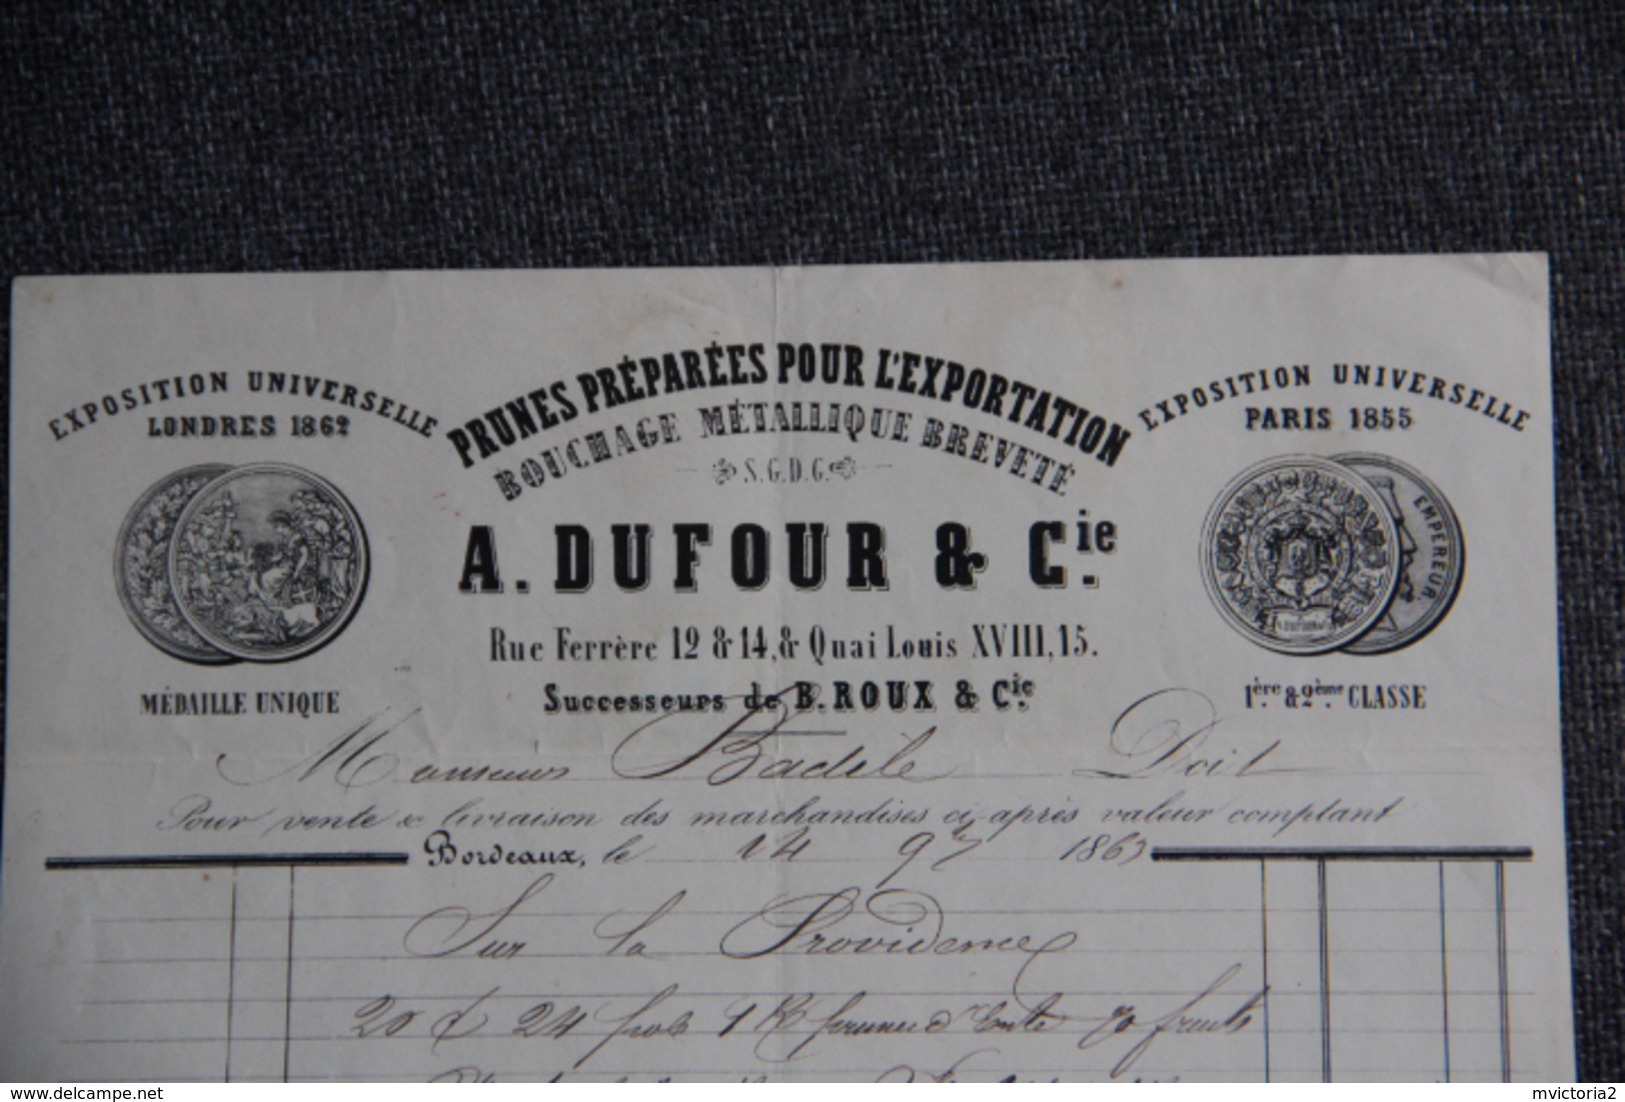 EXPOSITION UNIVERSELLE
LONDRES 1862
MÉDAILLE UNIQUE
PRUNES PRÉPARÉES POUR L'EXPORTATION
BOUCHAGE MÉTALLIQUE BREVETÉ
S.G.D.G.
A. DUFOUR & Cie.
Rue Ferrère 12 & 14, & Quai Louis XVIII, 15.
Successeurs de B. ROUX & Cie.
EXPOSITION UNIVERSELLE
PARIS 1855
EMPEREUR
1ère. & 2ème. CLASSE
Monsieur Badile Doit
Pour vente & livraison des marchandises ci-après valeur comptant
Bordeaux, le 14 9 1863
Sur la Providence
20 24 1 d'Ente 70 fruits
delcampe.net
mvictoria2